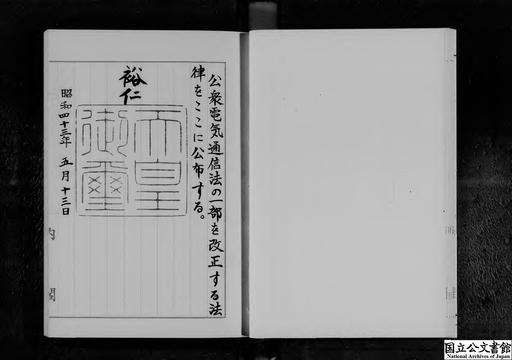 公衆電気通信法の一部を改正する法
律をここに公布する。
裕仁
天皇
御璽
昭和四十三年 五月十三日
内閣
国立公文書館
National Archives of Japan